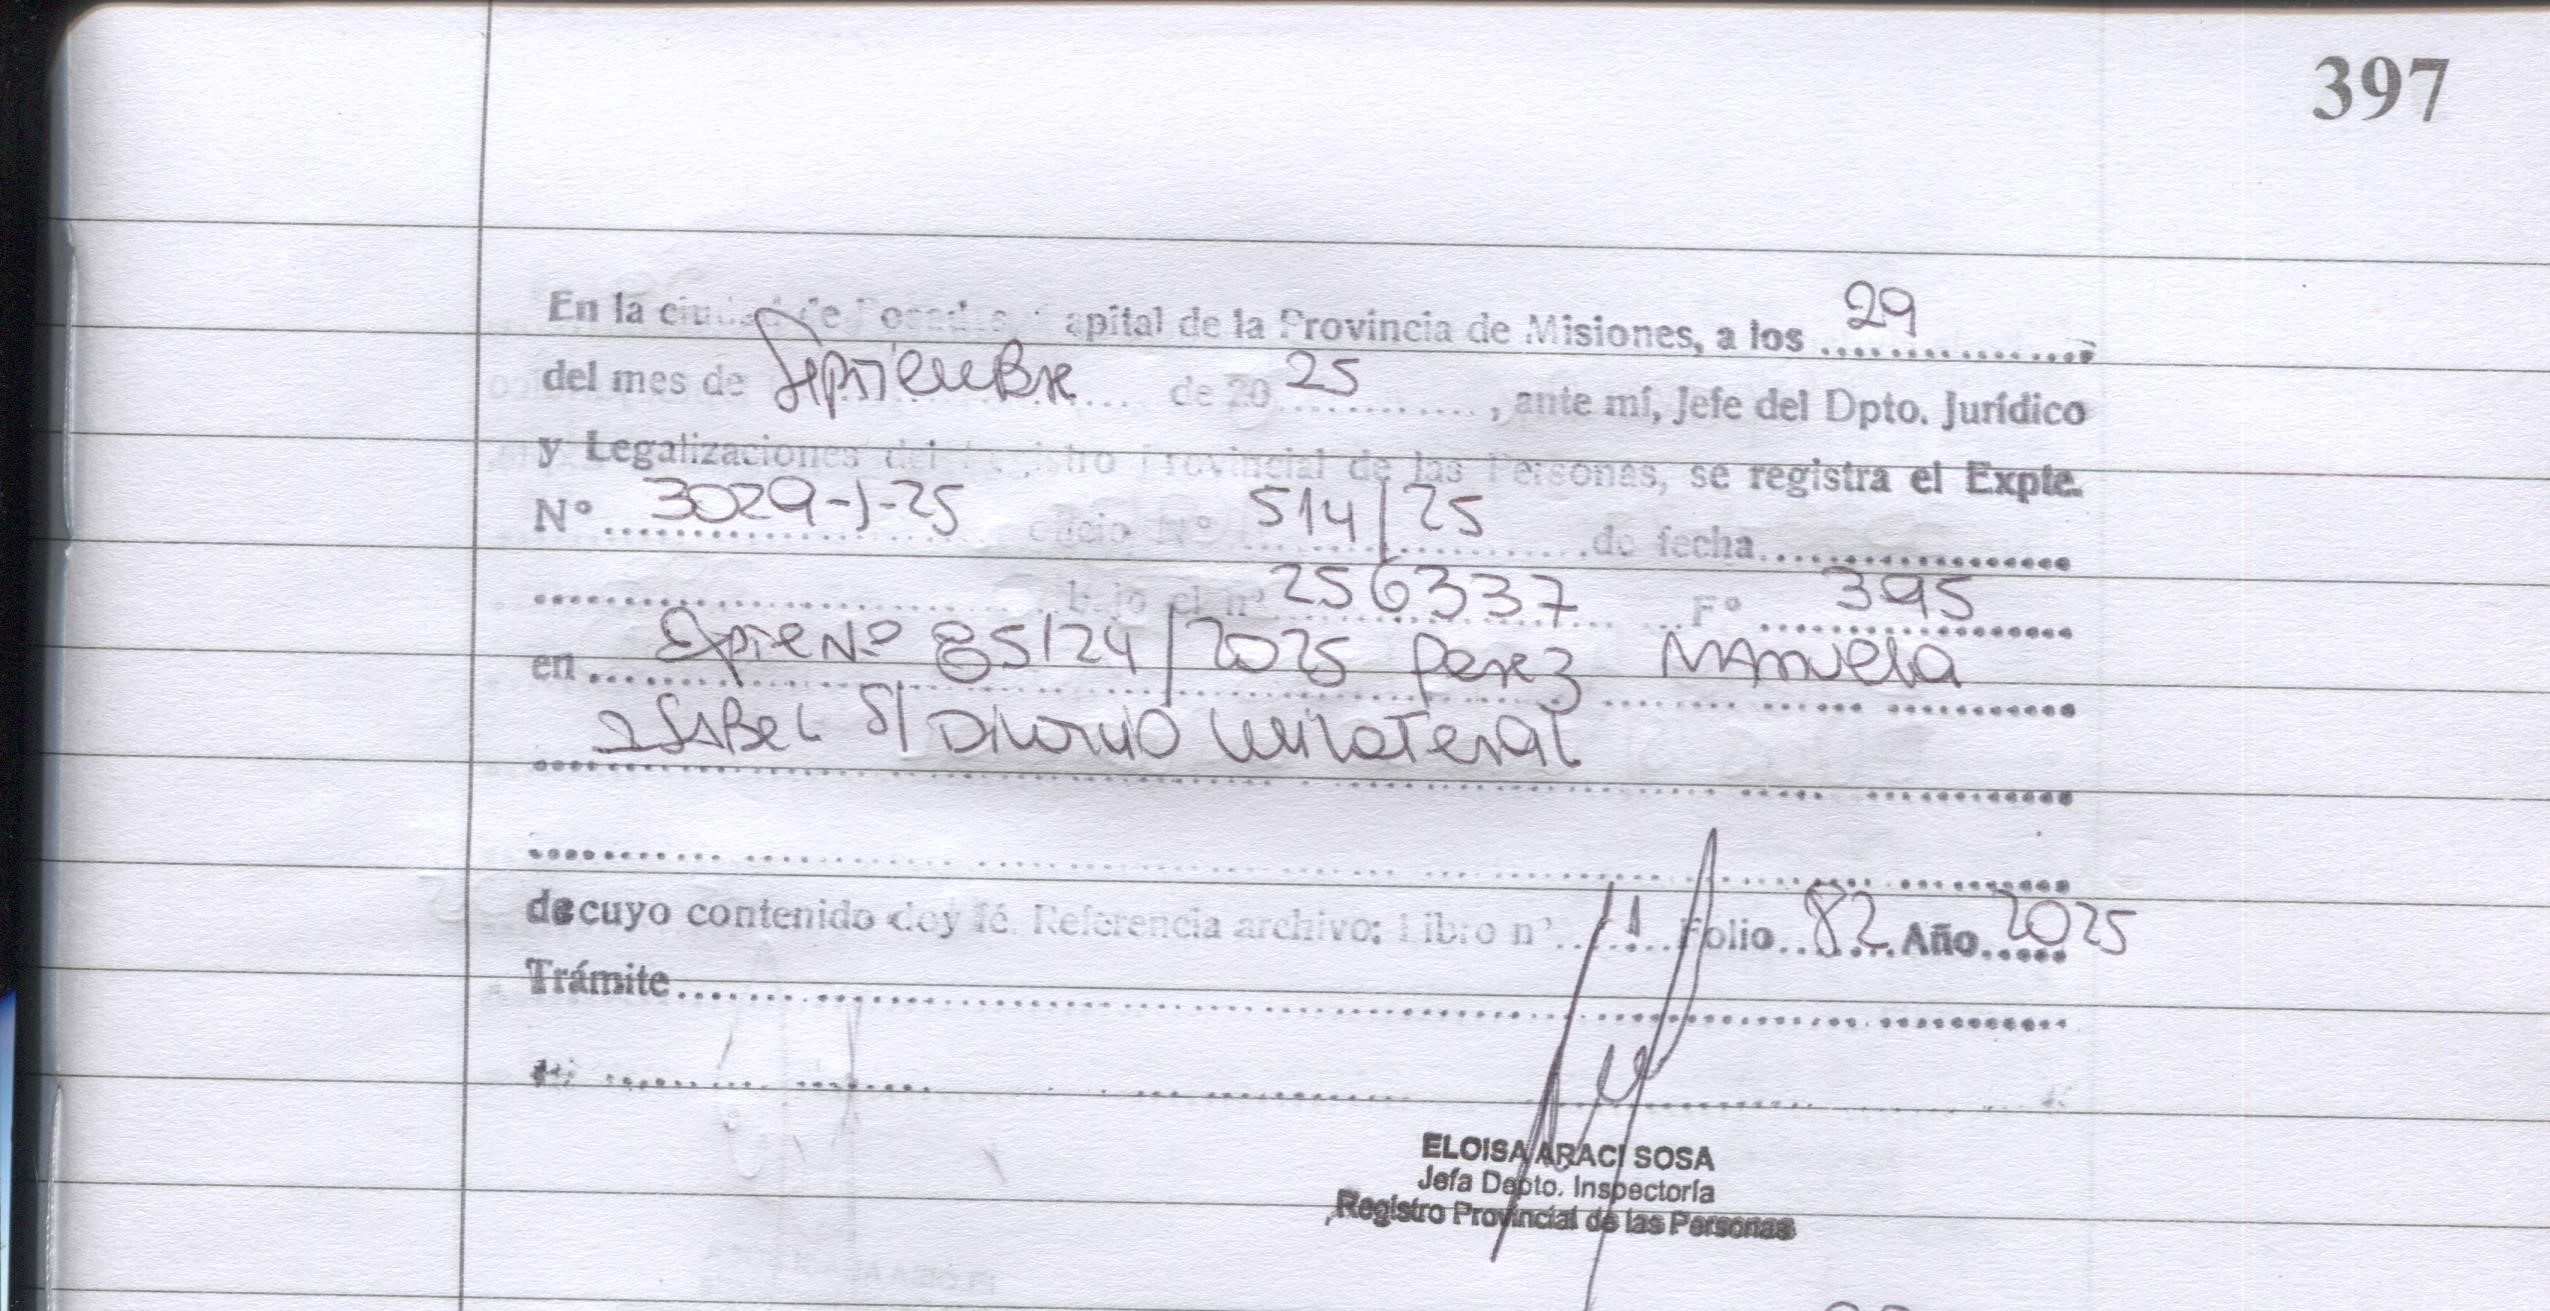 397
En la ciudad de Posadas, Capital de la Provincia de Misiones, a los 29
del mes de Septiembre de 20 25, ante mí, Jefe del Dpto. Jurídico
y Legalizaciones del Registro Provincial de las Personas, se registra el Expte.
Nº 3029-J-25 oficio Nº 514/25 de fecha
bajo el nº 256337 Fº 395
en Expte Nº 85124/2025 Perez Manuela
Isabel S/ Divorcio Unilateral
de cuyo contenido doy fé. Referencia archivo: Libro nº 1 Folio 82 Año 2025
Trámite
ELOISA ARACI SOSA
Jefa Depto. Inspectoría
Registro Provincial de las Personas